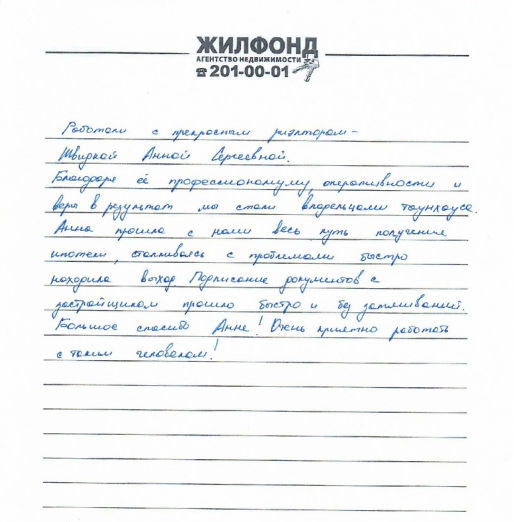 ЖИЛФОНД
АГЕНТСТВО НЕДВИЖИМОСТИ
☎ 201-00-01
Работали с прекрасным риэлтором -
Швидкой Анной Сергеевной.
Благодаря её профессионализму, оперативности и
вере в результат мы стали владельцами таунхауса.
Анна прошла с нами весь путь получения
ипотеки, сталкиваясь с проблемами быстро
находила выход. Подписание документов с
застройщиком прошло быстро и без затягиваний.
Большое спасибо Анне! Очень приятно работать
с таким человеком!